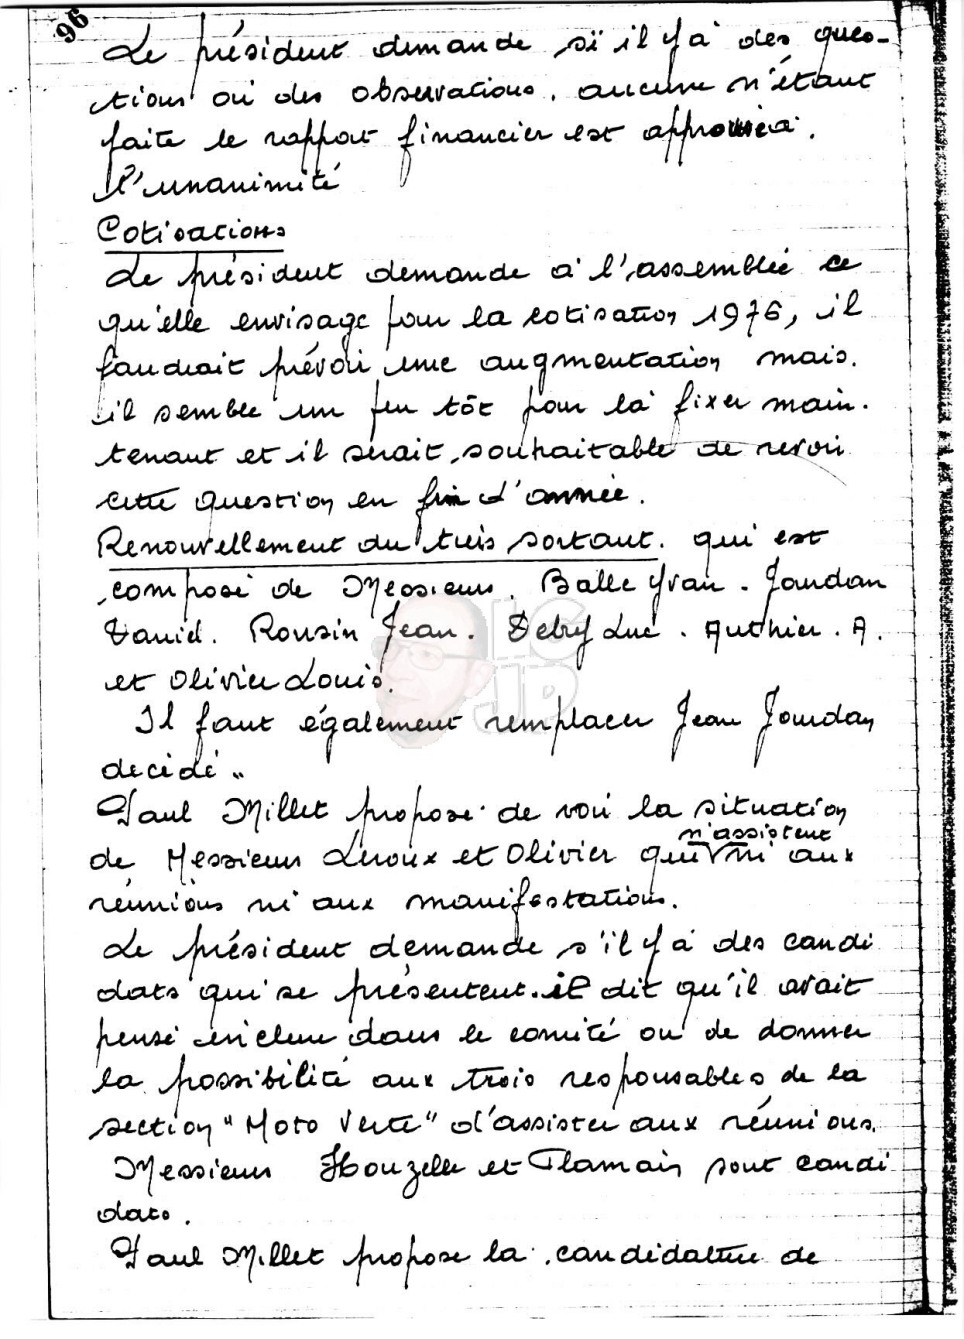 96
Le président demande si il y a des ques-
tions ou des observations. aucune n'étant
faite le rapport financier est approuvé a
l'unanimité
Cotisations
Le président demande à l'assemblée ce
qu'elle envisage pour la cotisation 1976, il
faudrait prévoir une augmentation mais.
il semble un peu tôt pour la fixer main.
tenant et il serait souhaitable de revoir
cette question en fin d'année.
Renouvellement du tiers sortant. qui est
composé de Messieurs. Balle Yvan. Jourdan
Daniel. Rousin Jean. Debry Luc. Authier. A.
et Olivier Louis.
Il faut également remplacer Jean Jourdan
décidé..
Paul Millet propose de voir la situation
n'assistent
de Messieurs Leroux et Olivier qui ni aux
réunions ni aux manifestations.
Le président demande s'il y a des candi
dats qui se présentent. il dit qu'il avait
pensé inclure dans le comité ou de donner
la possibilité aux trois responsables de la
section "Moto Verte" d'assister aux réunions.
Messieurs Houzelle et Flamain sont candi
dats.
Paul Millet propose la candidature de
LG
JP